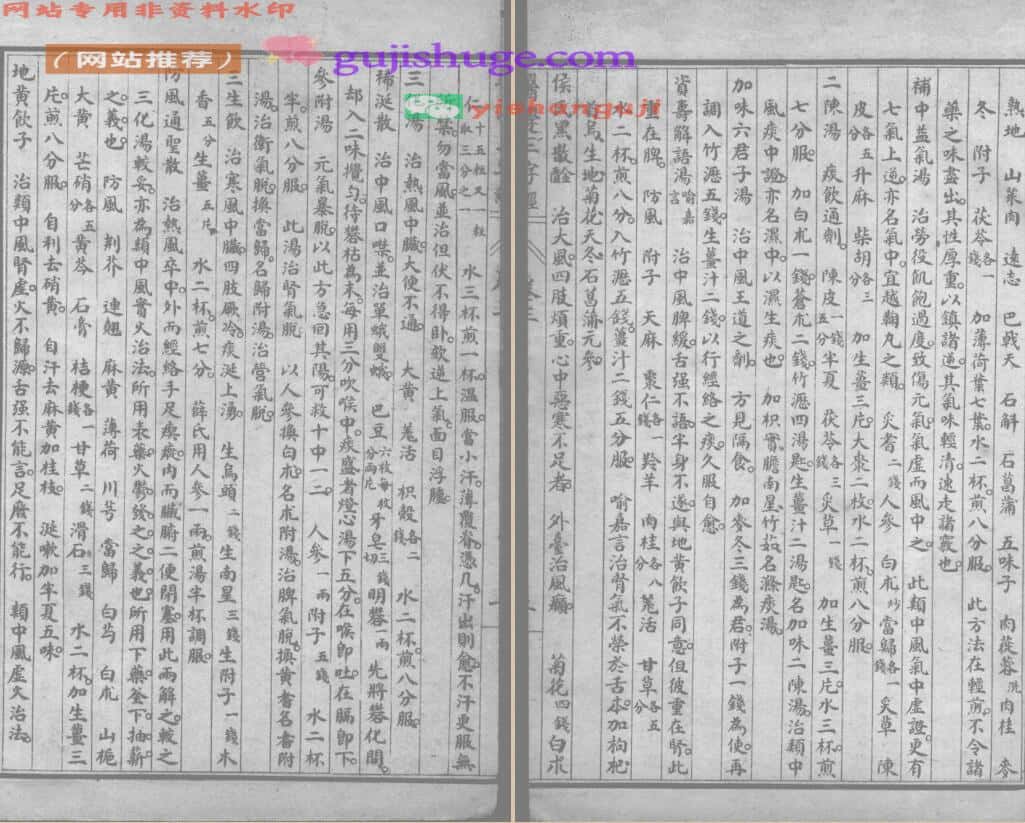 网站专用非资料水印
(网站推荐)
gujishuge.com
yishangji
水三杯煎一杯溫服當小汗薄覆脊憑几汗出則愈不汗更服無
禁勿當風並治但伏不得臥欬逆上氣面目浮腫
治熱風中臟大便不通 大黃 羌活 枳殼各二錢 水二杯煎八分服
稀涎散 治中風口噤並治單蛾雙蛾 巴豆六枚每枚分兩片 牙皂三錢切 明礬一兩 先將礬化開
却入二味攪勻待礬枯為末每用三分吹喉中痰盛者燈心湯下五分在喉即吐在膈即下
參附湯 元氣暴脫以此方急回其陽可救十中一二 人參一兩 附子五錢 水二杯
半煎八分服 此湯治腎氣脫 以人參換白朮名朮附湯治脾氣脫換黃耆名耆附
湯治衛氣脫換當歸名歸附湯治營氣脫
三生飲 治寒風中臟四肢厥冷痰涎上湧 生烏頭二錢 生南星三錢 生附子一錢 木
香五分 生薑五片 水二杯煎七分 薛氏用人參一兩煎湯半杯調服
防風通聖散 治熱風卒中外而經絡手足瘈瘲內而臟腑二便閉塞用此兩解之較之
三化湯較妥亦為類中風實火治法所用表藥火鬱發之之義也所用下藥釜下抽薪
之義也 防風 荆芥 連翹 麻黃 薄荷 川芎 當歸 白芍 白朮 山梔
大黃 芒硝各五分 黃芩 石膏 桔梗各一錢 甘草二錢 滑石三錢 水二杯加生薑三
片煎八分服 自利去硝黃 自汗去麻黃加桂枝 涎嗽加半夏五味
地黃飲子 治類中風腎虛火不歸源舌强不能言足廢不能行 類中風虛火治法
熟地 山萊肉 遠志 巴戟天 石斛 石菖蒲 五味子 肉蓯蓉洗 肉桂 麥
冬 附子 茯苓各一錢 加薄荷葉七葉水二杯煎八分服 此方法在輕煎不令諸
藥之味盡出其性厚重以鎮諸逆其氣味輕清速走諸竅也
補中益氣湯 治勞役飢飽過度致傷元氣氣虛而風中之 此類中風氣中虛證更有
七氣上逆亦名氣中宜越鞠丸之類 炙耆二錢 人參 白朮炒 當歸各一錢 炙草 陳
皮各五分 升麻 柴胡各三分 加生薑三片大棗二枚水二杯煎八分服
二陳湯 痰飲通劑 陳皮一錢五分 半夏 茯苓各三錢 炙草一錢 加生薑三片水三杯煎
七分服 加白朮一錢蒼朮二錢竹瀝四湯匙生薑汁二湯匙名加味二陳湯治類中
風痰中證亦名濕中以濕生痰也 加枳實膽南星竹茹名滌痰湯
加味六君子湯 治中風王道之劑 方見隔食 加麥冬三錢為君附子一錢為使再
調入竹瀝五錢生薑汁二錢以行經絡之痰久服自愈
資壽解語湯喻嘉言 治中風脾緩舌强不語半身不遂與地黃飲子同意但彼重在腎此
重在脾 防風 附子 天麻 棗仁各一錢 羚羊 肉桂各八分 羌活 甘草各五分
水二杯煎八分入竹瀝五錢薑汁二錢五分服 喻嘉言治腎氣不榮於舌本加枸杞
首烏生地菊花天冬石菖蒲元參
侯氏黑散 治大風四肢煩重心中惡寒不足者 外臺治風癲 菊花四錢 白朮